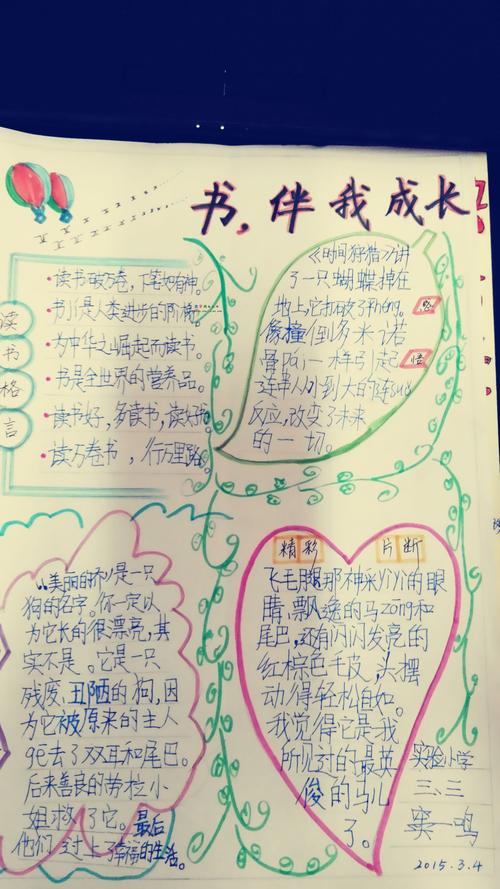 书，伴我成长
读书格言
读书破万卷，下笔如有神。
书川是人类进步的阶梯。
为中华之崛起而读书。
书是全世界的营养品。
读书好，多读书，读好书
读万卷书，行万里路
《时间狩猎》讲
了一只蝴蝶掉在
地上，它打破了Pínghéng。
像撞倒多米诺
骨牌一样引起
连串从小到大的连suǒ
反应，改变了未来
的一切。
感
悟
美丽的乔是一只
狗的名字。你一定以
为它长的很漂亮，其
实不是。它是一只
残废、丑陋的狗，因
为它被原来的主人
gē去了双耳和尾巴。
后来善良的带拉小
姐救了它。最后
他们过上了幸福的生活。
精彩 片断
飞毛腿那神采yìyì的眼
睛、飘逸的马zōng和
尾巴，还有闪闪发亮的
红棕色毛皮，头摆
动得轻松自如。
我觉得它是我
所见过的最英
俊的马儿
了。
实验小学
三、三
窦一鸣
2015.3.4